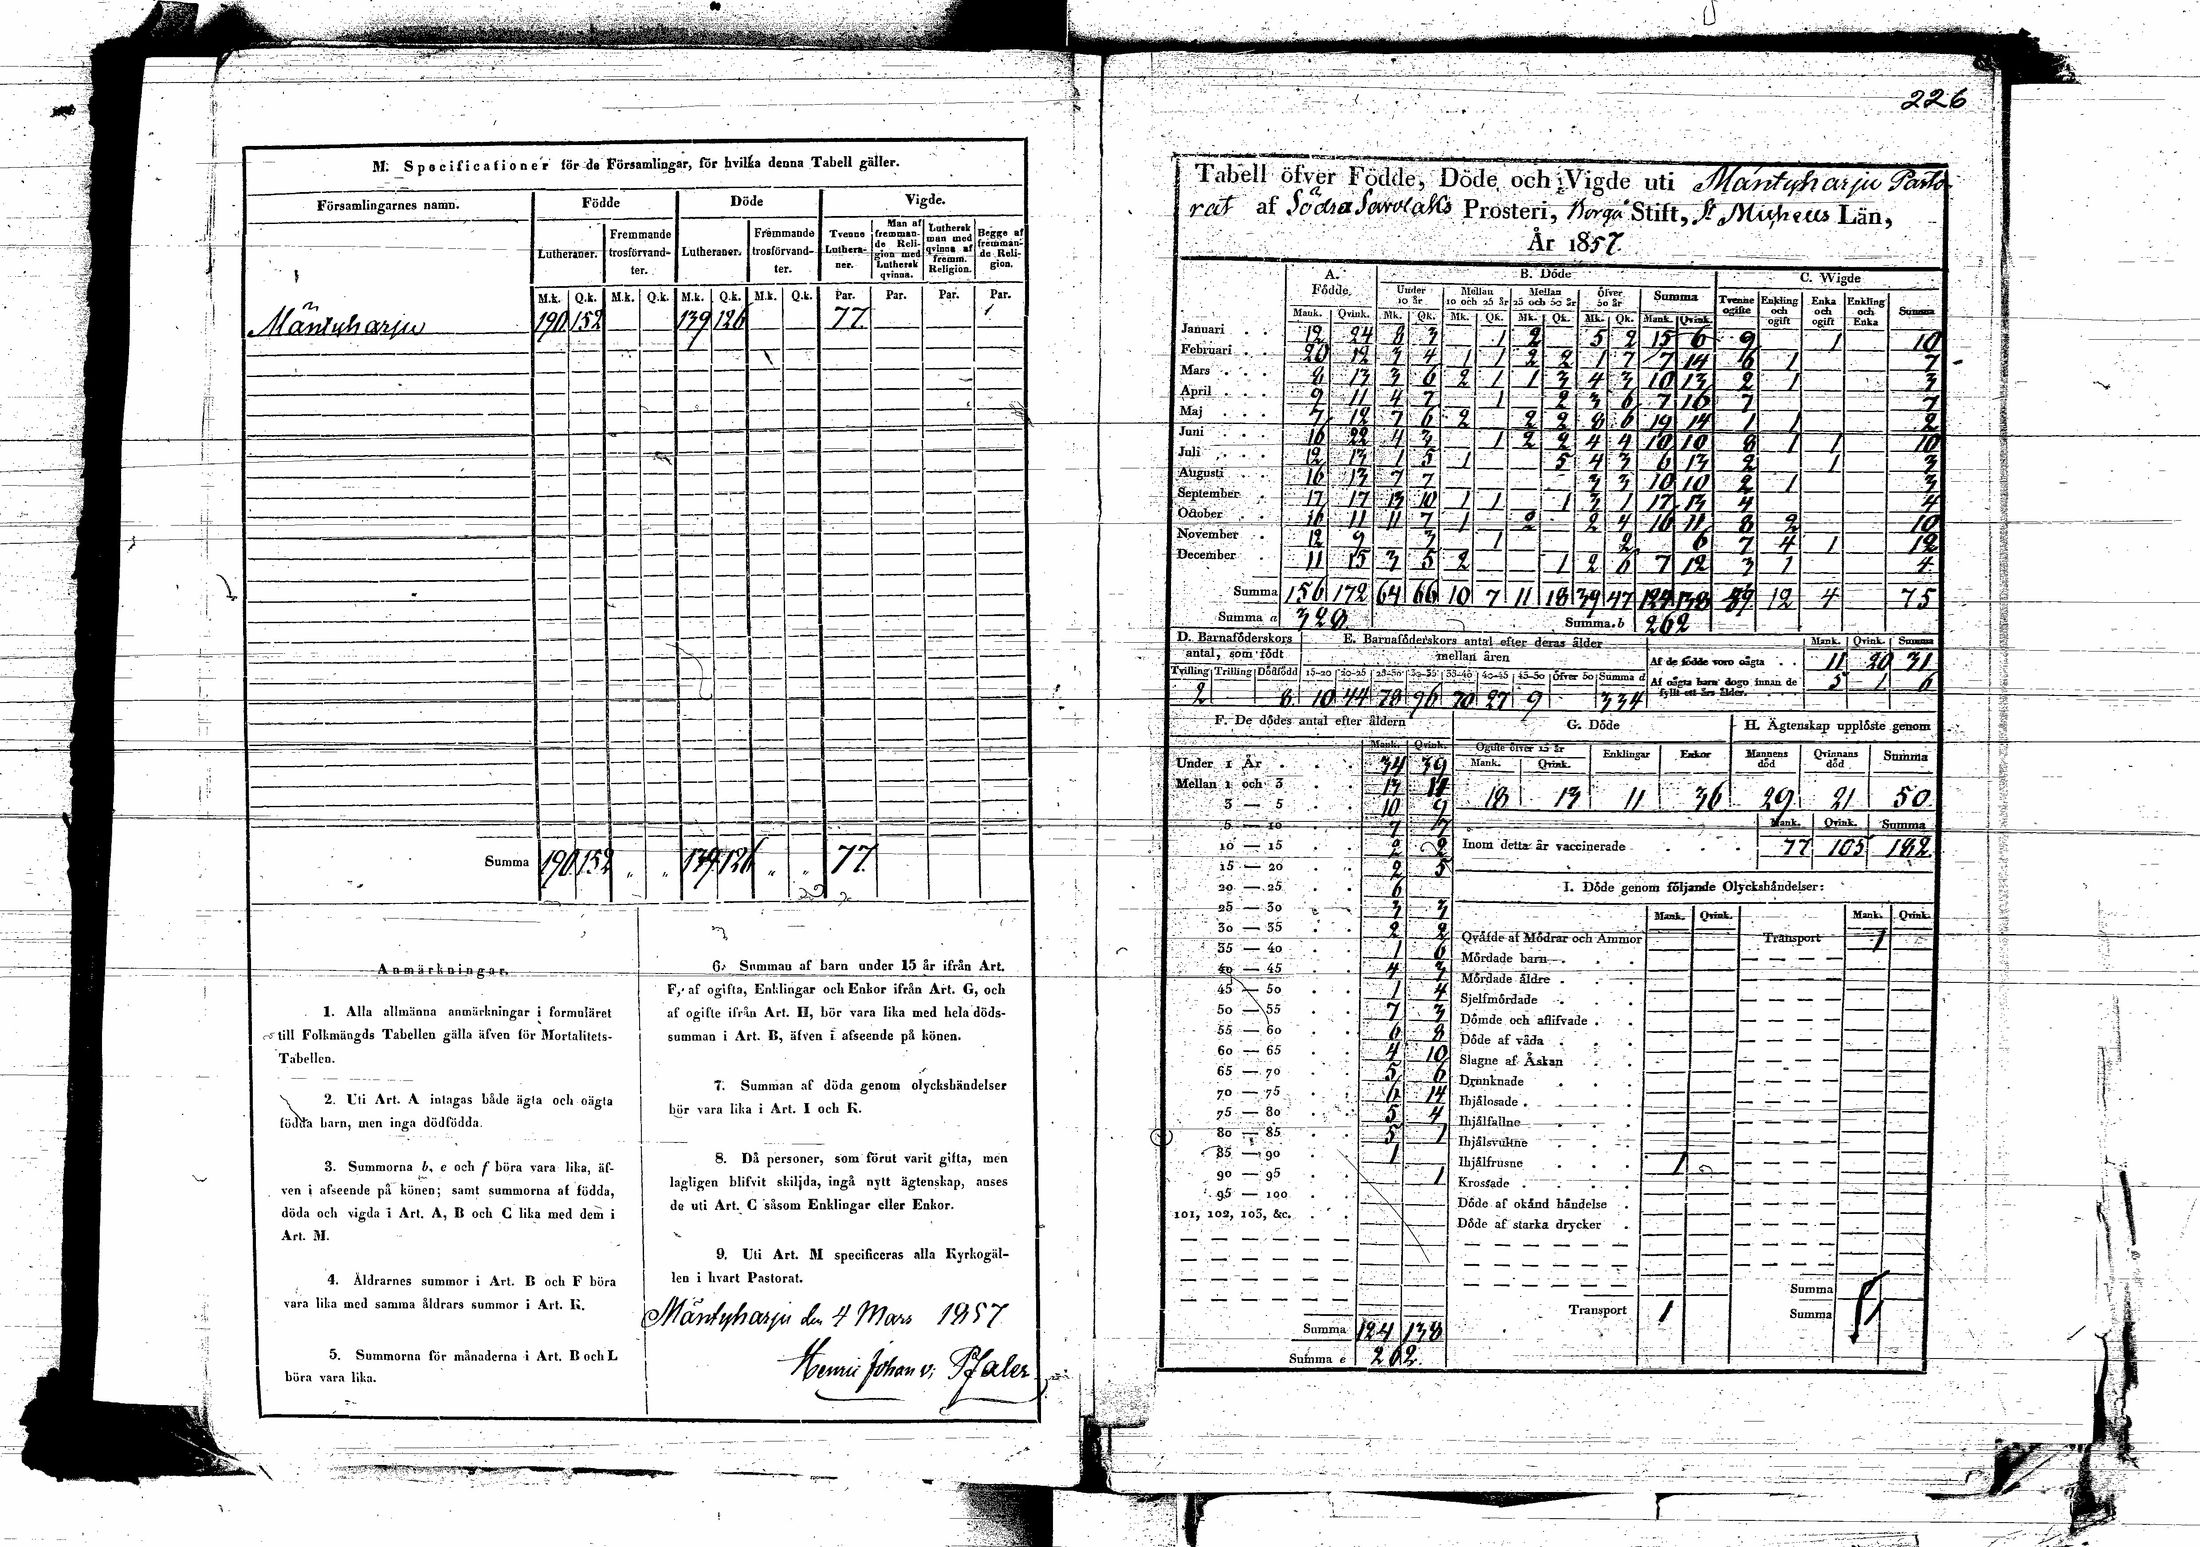 M. Specificationer för de Församlingar, för hvilka denna Tabell gäller.
Församlingarnes namn. Födde Döde Vigde.
Lutheraner. Fremmande trosförvandter. Lutheraner. Fremmande trosförvandter. Tvenne Lutheraner. Man af fremmande Religion med Luthersk qvinna. Luthersk man med qvinna af fremm. Religion. Begge af fremmande Religion.
M.k. Q.k. M.k. Q.k. M.k. Q.k. M.k. Q.k. Par. Par. Par. Par.
Mäntyharju 190 152 139 126 77
Summa 190 152 „ „ 139 126 „ „ 77
Anmärkningar.
1. Alla allmänna anmärkningar i formuläret
till Folkmängds Tabellen gälla äfven för Mortalitets-
Tabellen.
2. Uti Art. A intagas både ägta och oägta
födda barn, men inga dödfödda.
3. Summorna b, e och f böra vara lika, äf-
ven i afseende på könen; samt summorna af födda,
döda och vigda i Art. A, B och C lika med dem i
Art. M.
4. Åldrarnes summor i Art. B och F böra
vara lika med samma åldrars summor i Art. K.
5. Summorna för månaderna i Art. B och L
böra vara lika.
6. Summan af barn under 15 år ifrån Art.
F, af ogifta, Enklingar och Enkor ifrån Art. G, och
af ogifte ifrån Art. H, bör vara lika med hela döds-
summan i Art. B, äfven i afseende på könen.
7. Summan af döda genom olyckshändelser
bör vara lika i Art. I och K.
8. Då personer, som förut varit gifta, men
lagligen blifvit skiljda, ingå nytt ägtenskap, anses
de uti Art. C såsom Enklingar eller Enkor.
9. Uti Art. M specificeras alla Kyrkogäl-
len i hvart Pastorat.
Mäntyharju den 4 Mars 1857
Henric Johan v. Pfaler
226
Tabell öfver Födde, Döde och Vigde uti Mäntyharju Pasto-
rat af Södra Savolaks Prosteri, Borgå Stift, St Michels Län,
År 1857.
A. Födde. B. Döde C. Wigde
Under 10 år Mellan 10 och 25 år Mellan 25 och 50 år Öfver 50 år Summa Tvenne ogifte Enkling och ogift Enka och ogift Enkling och Enka Summa
Mank. Qvink. Mk. Qk. Mk. Qk. Mk. Qk. Mk. Qk. Mank. Qvink.
Januari 12 24 8 3 1 2 5 2 15 6 9 1 10
Februari 20 12 3 4 1 1 2 2 1 7 7 14 6 1 7
Mars 8 13 3 6 2 1 1 3 4 3 10 13 2 1 3
April 9 11 4 7 1 2 3 6 7 16 7 7
Maj 7 12 7 6 2 2 2 8 6 19 14 1 1 2
Juni 16 22 4 3 1 2 2 4 4 10 10 8 1 1 10
Juli 12 13 1 5 1 5 4 3 6 13 2 1 3
Augusti 16 13 7 7 3 3 10 10 2 1 3
September 17 17 13 10 1 1 1 3 1 17 13 4 4
October 16 11 11 7 1 2 2 4 16 11 8 2 10
November 12 9 3 1 2 6 7 4 1 12
December 11 15 3 5 2 1 2 6 7 12 3 1 4
Summa 156 172 64 66 10 7 11 18 39 47 124 138 59 12 4 75
Summa a 328 Summa b 262
D. Barnaföderskors antal, som födt E. Barnaföderskors antal efter deras ålder mellan åren Mank. Qvink. Summa
Tvilling Trilling Dödfödd 15-20 20-25 25-30 30-35 35-40 40-45 45-50 Öfver 50 Summa d
2 8 10 44 78 96 70 27 9 334
Af de födde voro oägta 11 20 31
Af oägta barn dogo innan de fyllt ett års ålder. 5 1 6
F. De dödes antal efter åldern G. Döde H. Ägtenskap upplöste genom
Mank. Qvink. Ogifte öfver 15 år Mank. Qvink. Enklingar Enkor Mannens död Qvinnans död Summa
18 13 11 36 29 21 50
Mank. Qvink. Summa
Inom detta år vaccinerade 77 105 182
Under 1 År 34 39
Mellan 1 och 3 13 11
3 — 5 10 9
5 — 10 7 7
10 — 15 2 2
15 — 20 2 5
20 — 25 6
25 — 30 3 3
30 — 35 2 2
35 — 40 1 6
40 — 45 4 3
45 — 50 1 4
50 — 55 7 3
55 — 60 6 8
60 — 65 4 10
65 — 70 5 6
70 — 75 6 14
75 — 80 5 4
80 — 85 5 1
85 — 90 1
90 — 95 1
95 — 100
101, 102, 103, &c.
Summa 124 138
Summa e 262.
I. Döde genom följande Olyckshändelser:
Mank. Qvink. Mank. Qvink.
Qväfde af Mödrar och Ammor Transport 1
Mördade barn
Mördade äldre
Sjelfmördade
Dömde och aflifvade
Döde af våda
Slagne af Åskan
Drunknade
Ihjälosade
Ihjälfallne
Ihjälsvultne
Ihjälfrusne 1
Krossade
Döde af okänd händelse
Döde af starka drycker
Summa
Transport 1 Summa 1